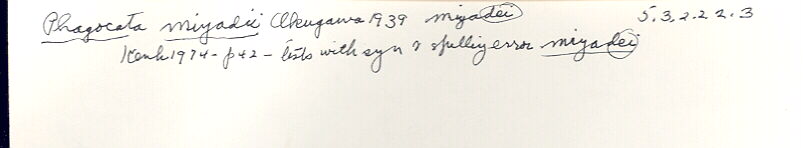 Phagocata miyadii Okugawa 1939 miyadei 5.3.2.2.2.3
Kenk 1974 - p42 - lists with syn & spelling error miyadei